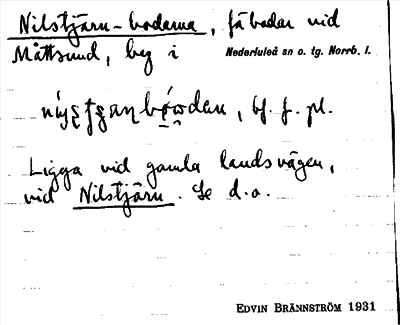 Nilstjärn-bodarna, fäbodar vid
Måttsund, beg i Nederluleå sn o. tg. Norrb. l.
bf. f. pl.
Ligga vid gamla landsvägen,
vid Nilstjärn. Se d.o.
EDVIN BRÄNNSTRÖM 1931